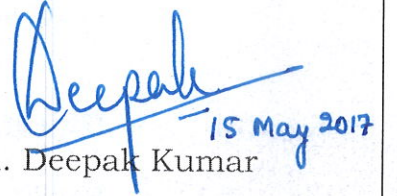 Deepak
15 May 2017
. Deepak Kumar